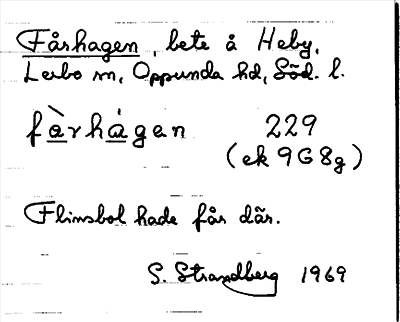 Fårhagen, bete å Heby,
Lerbo sn, Oppunda hd, Söd. l.
fàrhágen 229
(ek 9G8g)
Flinsbol hade får där.
S. Strandberg 1969